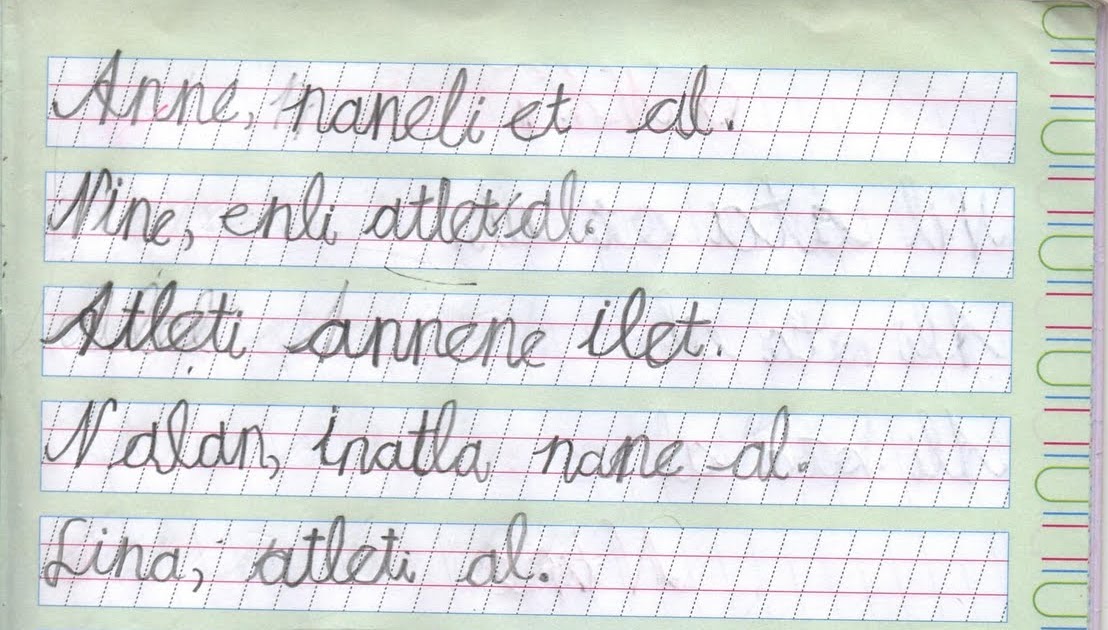 Anne, naneli et al.
Nine, enli atlet al.
Atleti annene ilet.
Nalan, inatla nane al.
Lina, atleti al.